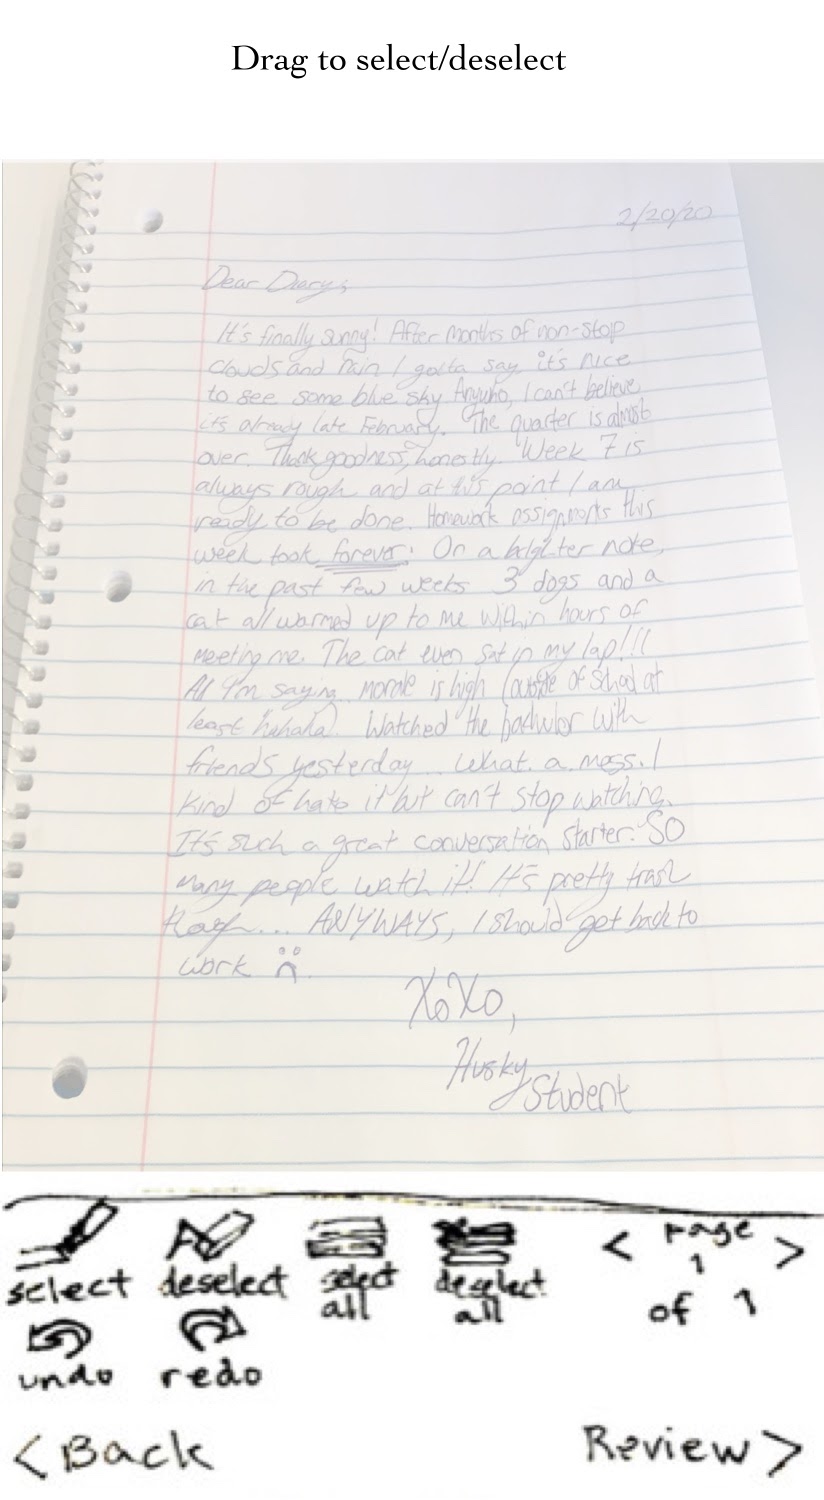 Drag to select/deselect
2/20/20
Dear Diary,
It's finally sunny! After months of non-stop
clouds and rain I gotta say it's nice
to see some blue sky. Anywho, I can't believe
it's already late February. The quarter is almost
over. Thank goodness, honestly. Week 7 is
always rough and at this point I am
ready to be done. Homework assignments this
week took forever. On a brighter note,
in the past few weeks 3 dogs and a
cat all warmed up to me within hours of
meeting me. The cat even sat in my lap!!!
All I'm saying, morale is high (outside of school at
least hahaha). Watched the bachelor with
friends yesterday. What a mess. I
kind of hate it but can't stop watching.
It's such a great conversation starter. SO
many people watch it! It's pretty trash
though... ANYWAYS, I should get back to
work
XoXo,
Husky
Student
select deselect select all deselect all < Page 1 of 1 >
undo redo
< Back Review >